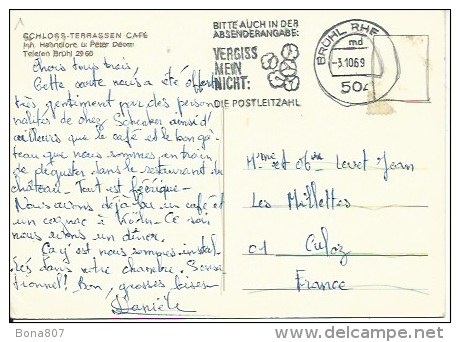 SCHLOSS-TERRASSEN CAFE
Inh. Hannelore u. Peter Damm
Telefon Brühl 2966
Chers tous trois,
Cette carte nous a été offerte
très gentiment par des person
nalités de chez Schenker ainsi d'
ailleurs que le café et le bon gâ-
teau que nous sommes en train
de déguster dans le restaurant du
château - Tout est féerique -
Nous avons déjà bu un café et
un cognac à Köln - Ce soir
nous avons un dîner.
Ça y est nous sommes instal-
lés dans notre chambre. Sensa
tionnel! Bon, grosses bises
Danièle
BITTE AUCH IN DER
ABSENDERANGABE:
VERGISS
MEIN
NICHT:
DIE POSTLEITZAHL
BRÜHL RHE
md
-3.10.69
504
Mme et Mr Levet Jean
Les Millettes
01 Culoz
France
© Bona807
delcampe.net